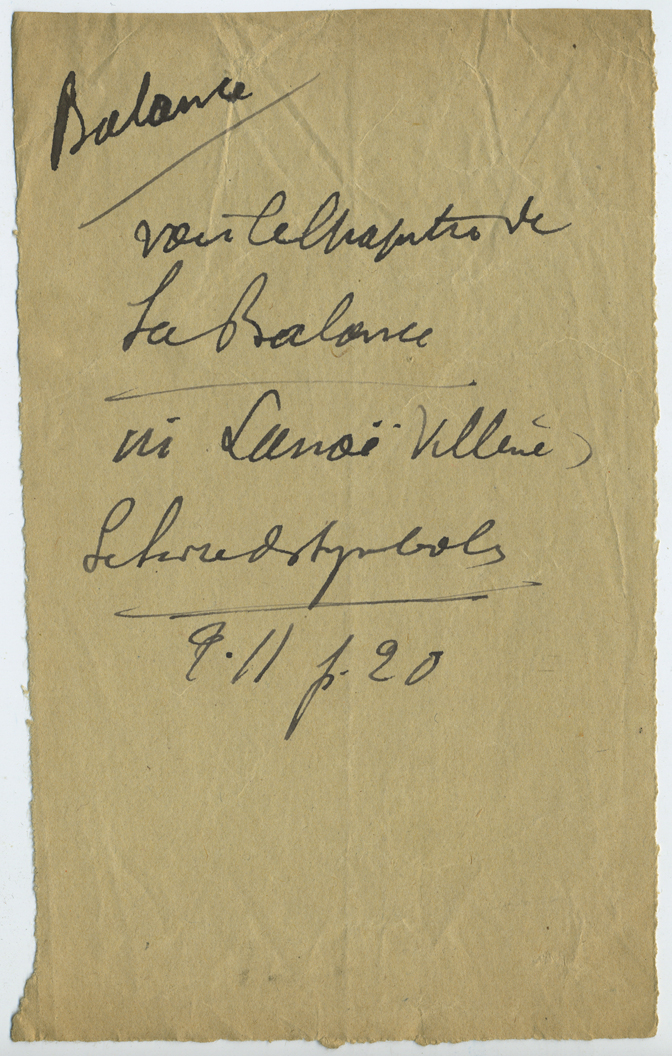 Balance
voir le Chapitre de
La Balance
in Lanoë Villène
Le livre des symboles
T. II p. 20